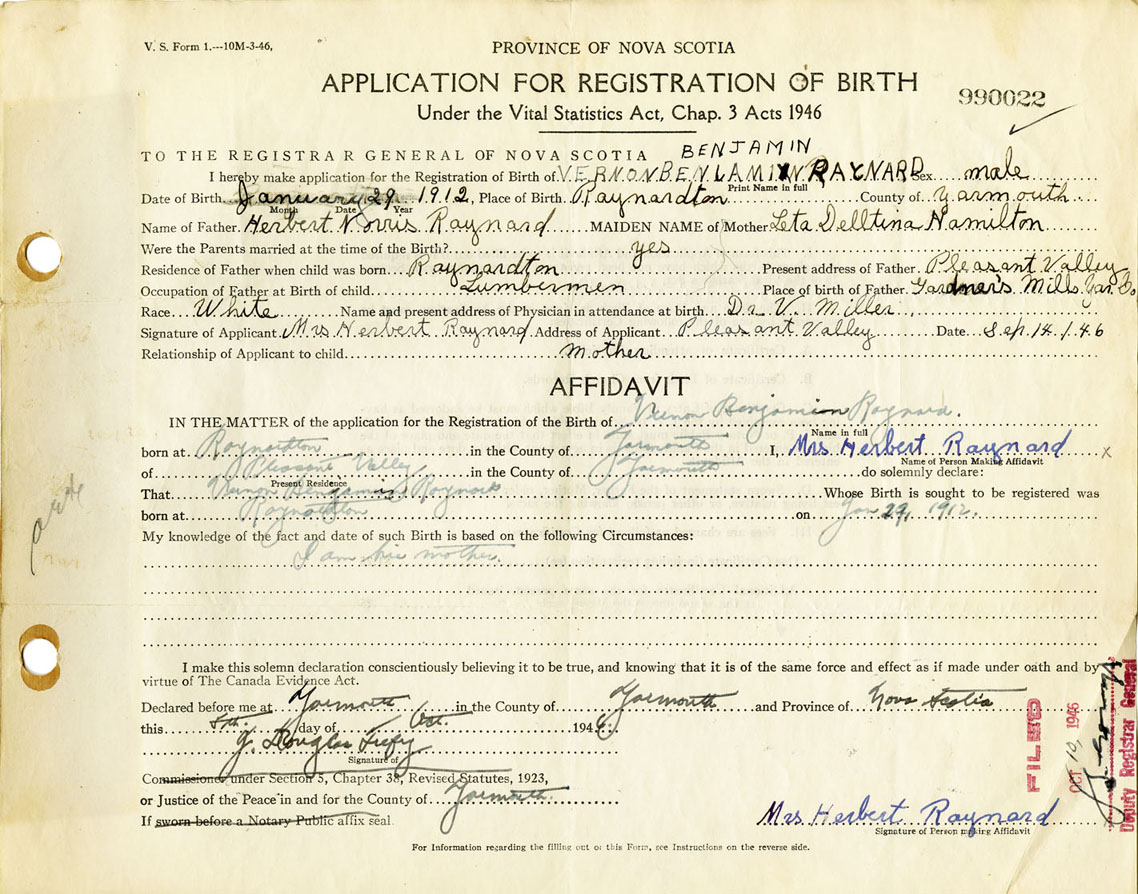 V. S. Form 1.---10M-3-46,
PROVINCE OF NOVA SCOTIA
APPLICATION FOR REGISTRATION OF BIRTH
990022
Under the Vital Statistics Act, Chap. 3 Acts 1946
BENJAMIN
TO THE REGISTRAR GENERAL OF NOVA SCOTIA
I hereby make application for the Registration of Birth of VERNON BENLAMIN RAYNARD Sex male
Print Name in full
Date of Birth January 29 1912, Place of Birth Raynardton County of Yarmouth
Month Date Year
Name of Father Herbert Norris Raynard MAIDEN NAME of Mother Leta Delltina Hamilton
Were the Parents married at the time of the Birth? yes
Residence of Father when child was born Raynardton Present address of Father Pleasant Valley
Occupation of Father at Birth of child Lumbermen Place of birth of Father Gardner's Mills Yar. Co
Race White Name and present address of Physician in attendance at birth Dr V. Miller
Signature of Applicant Mrs Herbert Raynard Address of Applicant Pleasant Valley Date Sep. 14. 146
Relationship of Applicant to child Mother
AFFIDAVIT
IN THE MATTER of the application for the Registration of the Birth of Vernon Benjamin Raynard.
Name in full
born at Raynardton in the County of Yarmouth I, Mrs Herbert Raynard x
Name of Person Making Affidavit
of Pleasant Valley in the County of Yarmouth do solemnly declare:
Present Residence
That Vernon Benjamin Raynard Whose Birth is sought to be registered was
born at Raynardton on Jan 29, 1912.
My knowledge of the fact and date of such Birth is based on the following Circumstances:
I am his mother.
I make this solemn declaration conscientiously believing it to be true, and knowing that it is of the same force and effect as if made under oath and by
virtue of The Canada Evidence Act.
Declared before me at Yarmouth in the County of Yarmouth and Province of Nova Scotia
this 8th day of Oct 1946
J. Douglas
Signature of
Commissioner under Section 5, Chapter 38, Revised Statutes, 1923,
or Justice of the Peace in and for the County of Yarmouth
If sworn before a Notary Public affix seal.
Mrs Herbert Raynard
Signature of Person making Affidavit
For Information regarding the filling out of this Form, see Instructions on the reverse side.
FILED
OCT 10, 1946
Deputy Registrar General